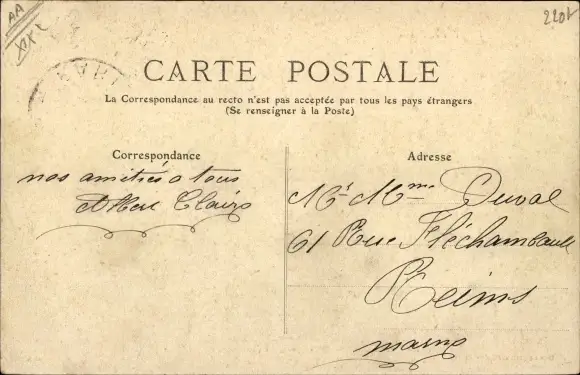 AA
220f
CARTE POSTALE
La Correspondance au recto n'est pas acceptée par tous les pays étrangers
(Se renseigner à la Poste)
Correspondance
nos amitiés a tous
Claire
Adresse
Mr Mme Duval
61 Rue Fléchambault
Reims
Marne